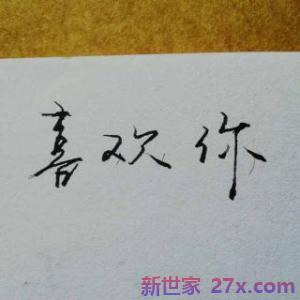 喜欢你
新世家 27x.com